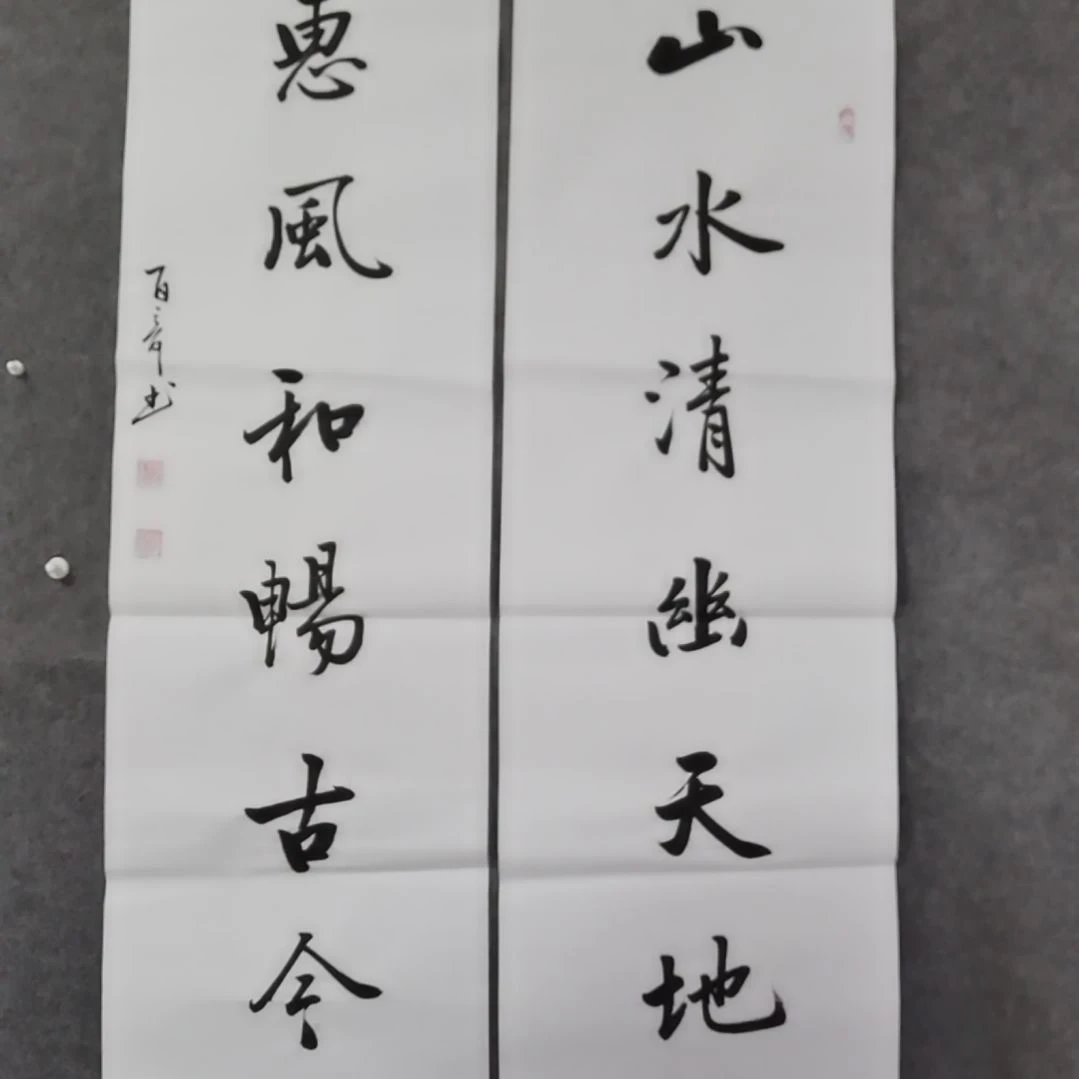 山水清幽天地
惠風和暢古今